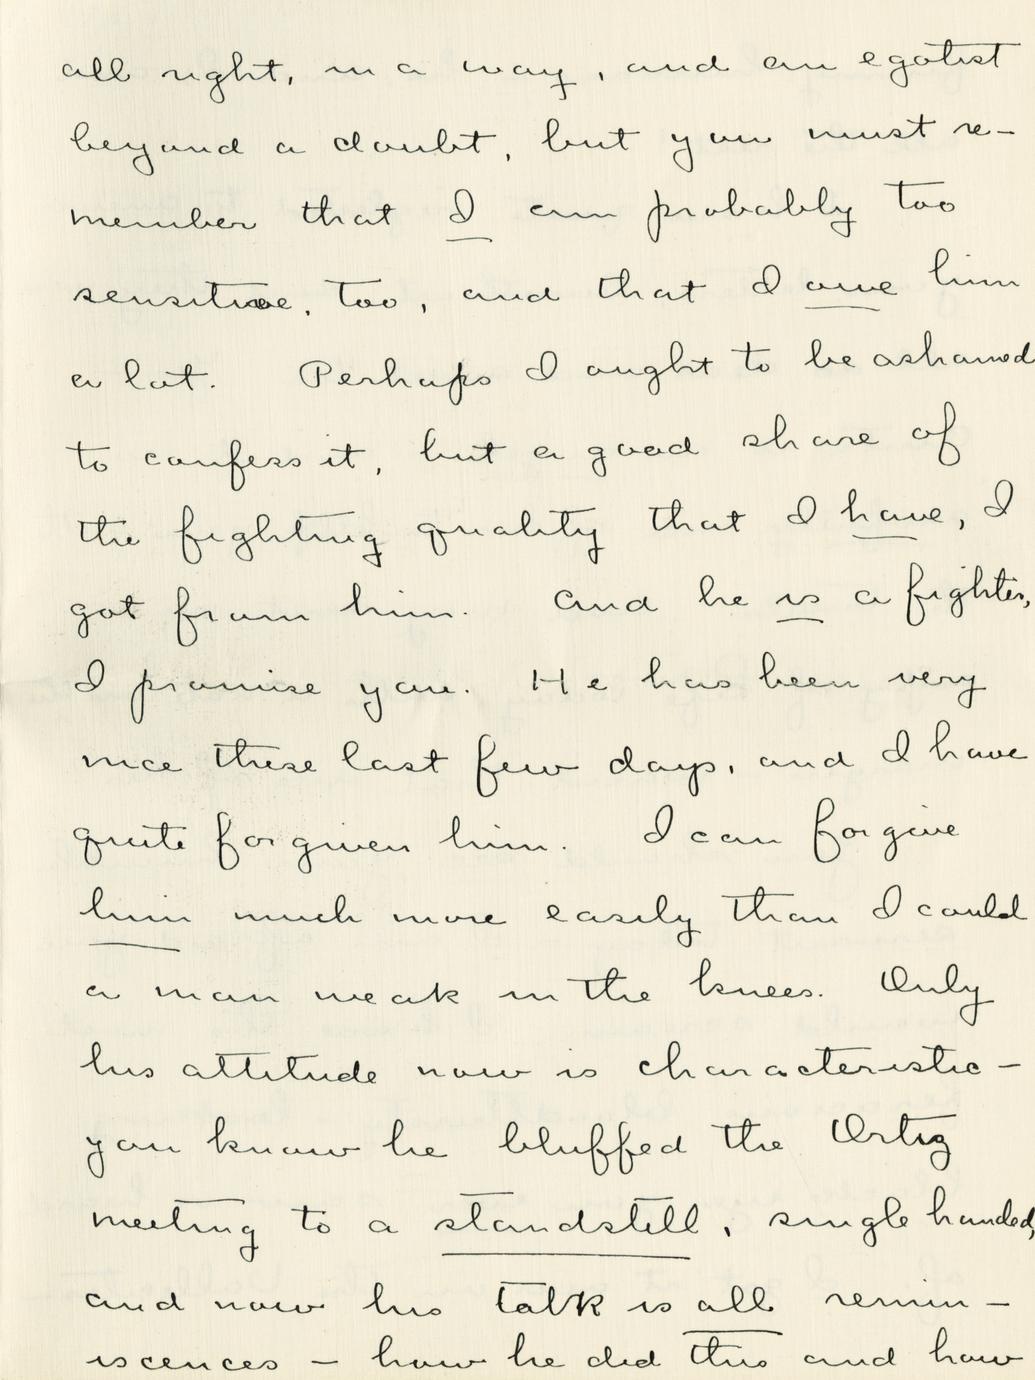 all right, in a way, and an egotist
beyond a doubt, but you must re-
member that I am probably too
sensitive, too, and that I owe him
a lot. Perhaps I ought to be ashamed
to confess it, but a good share of
the fighting quality that I have, I
got from him. And he is a fighter,
I promise you. He has been very
nice these last few days, and I have
quite forgiven him. I can forgive
him much more easily than I could
a man weak in the knees. Only
his attitude now is characteristic -
you know he bluffed the Ortiz
meeting to a standstill, single handed,
and now his talk is all remin-
iscences - how he did this and how